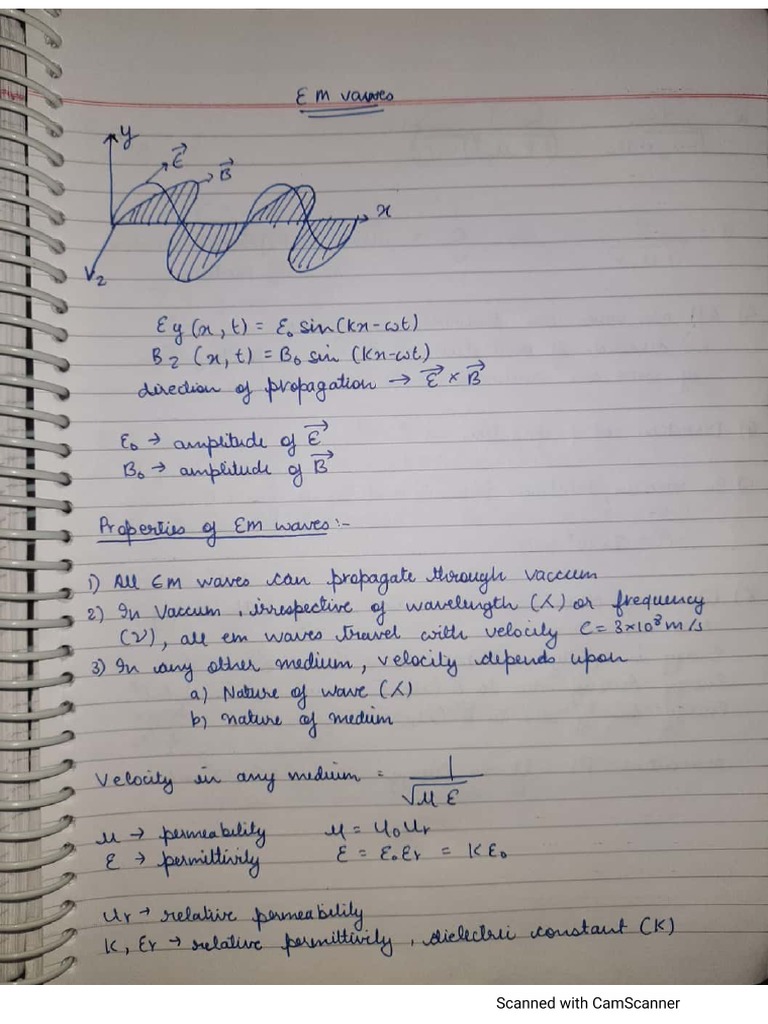 EM vawes
y
E⃗
B⃗
x
z
Ey (x, t) = E₀ sin(kx-ωt)
Bz (x, t) = B₀ sin (kx-ωt)
direction of propagation → E⃗ × B⃗
E₀ → amplitude of E⃗
B₀ → amplitude of B⃗
Properties of EM waves :-
1) All EM waves can propagate through vaccum
2) In Vaccum, irrespective of wavelength (λ) or frequency
(ν), all em waves travel with velocity c = 3×10⁸ m/s
3) In any other medium, velocity depends upon
a) Nature of wave (λ)
b) nature of medium
Velocity in any medium = 1/√με
μ → permeability μ = μ₀μr
ε → permittivity ε = ε₀εr = kε₀
μr → relative permeability
K, εr → relative permittivity, dielectric constant (K)
Scanned with CamScanner